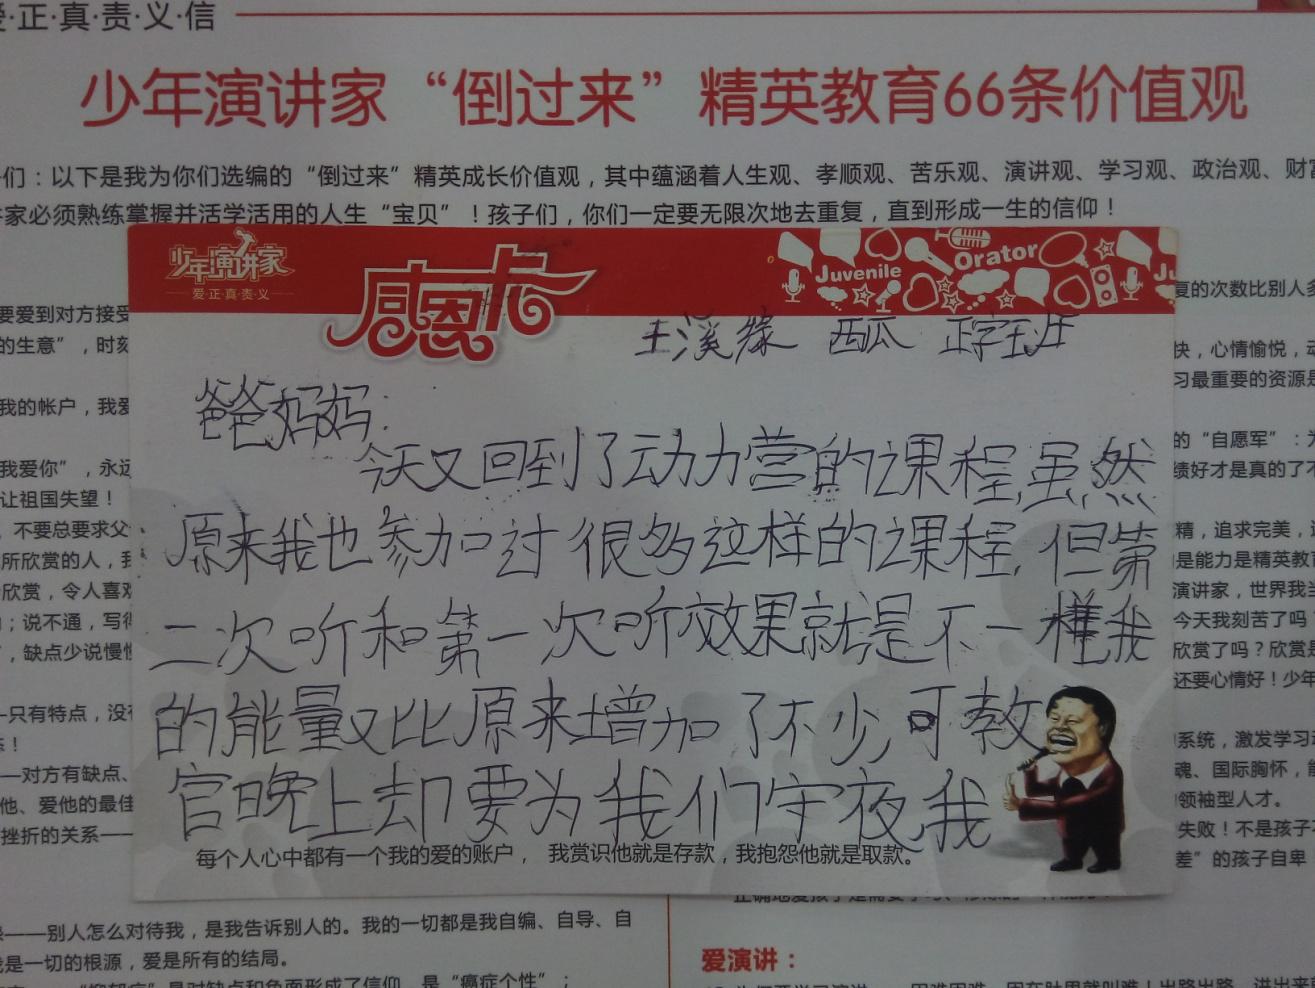 爱·正·真·责·义·信
少年演讲家“倒过来”精英教育66条价值观
们：以下是我为你们选编的“倒过来”精英成长价值观，其中蕴涵着人生观、孝顺观、苦乐观、演讲观、学习观、政治观、财富
家必须熟练掌握并活学活用的人生“宝贝”！孩子们，你们一定要无限次地去重复，直到形成一生的信仰！
少年演讲家
爱·正·真·责·义
感恩卡
Juvenile
Orator
Ju
王溪缘 西瓜 正字王班
爸爸妈妈：
今天又回到了动力营的课程，虽然
原来我也参加过很多这样的课程，但第
二次听和第一次听效果就是不一样我
的能量又比原来增加了不少，可教
官晚上却要为我们守夜，我
每个人心中都有一个我的爱的账户，我赏识他就是存款，我抱怨他就是取款。
要爱到对方接受
的生意”，时刻
我的帐户，我爱
我爱你”，永远
让祖国失望！
不要总要求父
所欣赏的人，我
欣赏，令人喜欢
；说不通，写得
，缺点少说慢慢
只有特点，没有
——对方有缺点、
他、爱他的最佳
挫折的关系——
复的次数比别人多
快，心情愉悦，动
习最重要的资源是
的“自愿军”：为
绩好才是真的了不
精，追求完美，追
是能力是精英教育
演讲家，世界我当
今天我刻苦了吗
欣赏了吗？欣赏是
还要心情好！少年
系统，激发学习
魂、国际胸怀，能
领袖型人才。
失败！不是孩子
差”的孩子自卑
——别人怎么对待我，是我告诉别人的。我的一切都是我自编、自导、自
是一切的根源，爱是所有的结局。
爱演讲：